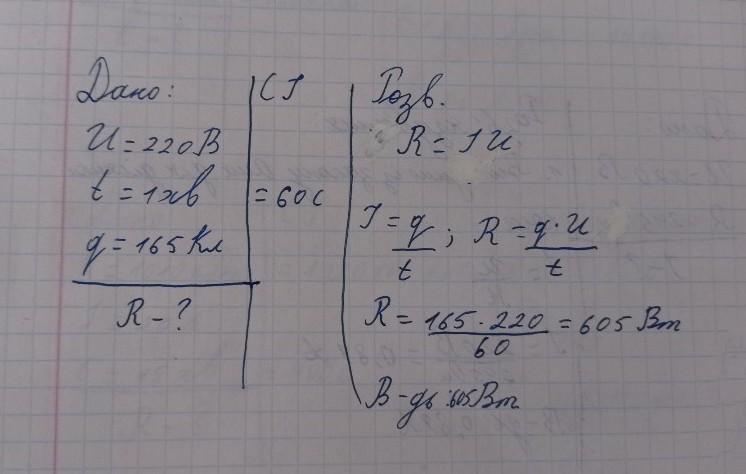 Дано:
U = 220 В
t = 1 хв
q = 165 Кл
R - ?
СІ
= 60 с
Розв.
R = IU
I = q/t ; R = q·U/t
R = 165·220/60 = 605 Вт
В-дь: 605 Вт